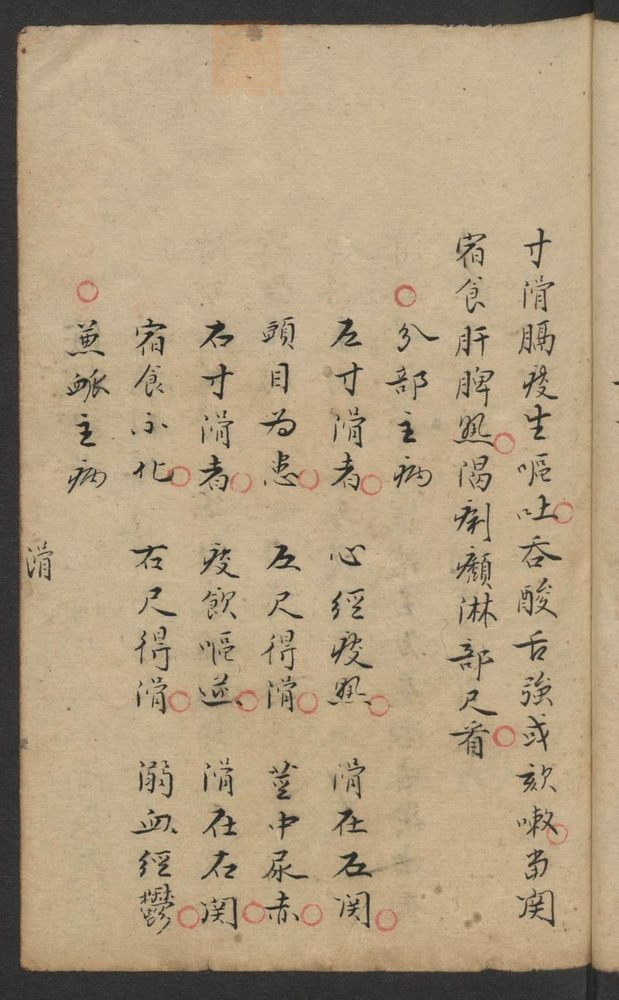 寸滑膈痰生嘔吐吞酸舌強或欬嗽當関
宿食肝脾熱渴痢癲淋部尺看
分部主病
左寸滑者 心經痰熱 滑在左関
頭目为患 左尺得滑 莖中尿赤
右寸滑者 痰飲嘔逆 滑在右関
宿食不化 右尺得滑 溺血經鬱
兼脈主病
滑